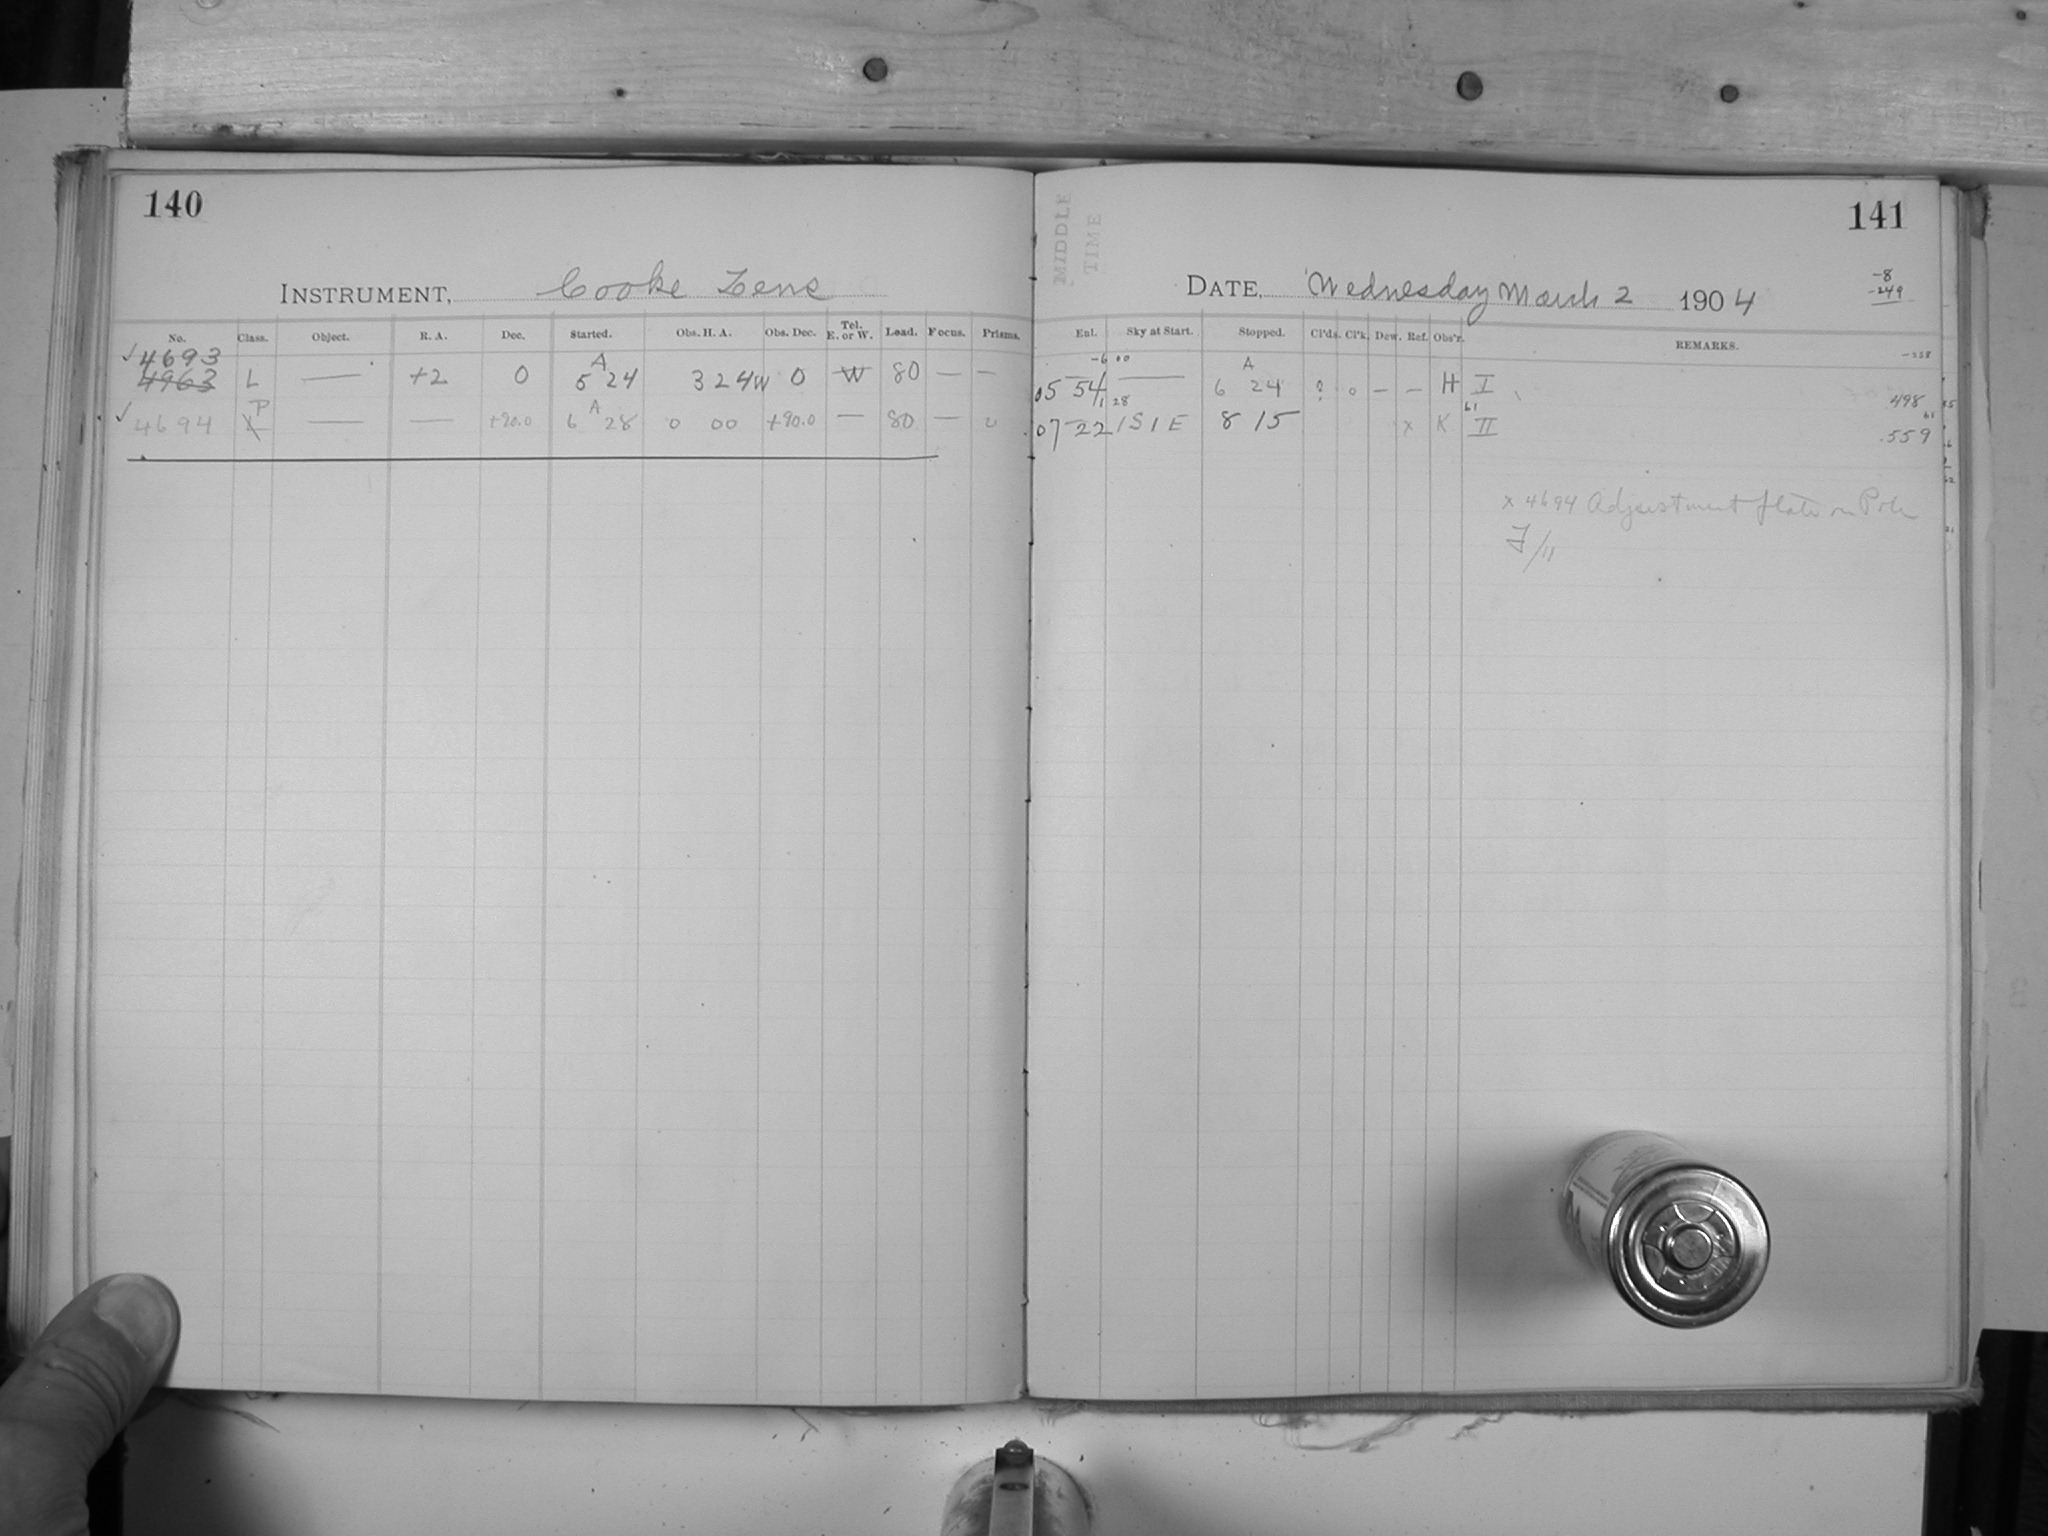 140
INSTRUMENT, Cooke Lens
No. Class. Object. R. A. Dec. Started. Obs. H. A. Obs. Dec. Tel. E. or W. Load. Focus. Prisms.
✓ 4693
4963 L — +2 0 5 A 24 3 24 W 0 W 80 — —
✓ 4694 P — — +90.0 6 A 28 0 00 +90.0 — 80 — 0
MIDDLE
TIME
141
DATE, Wednesday March 2 1904
-8
-249
Ent. Sky at Start. Stopped. Cl'ds. Cl'k. Dew. Ref. Obs'r. REMARKS.
-6 00 -258
05 54 — 6 A 24 ? 0 — — H I 498
1 28 61 61
07 22 1S1E 8 15 x K II .559
x 4694 Adjustment plate on Pole
F/11